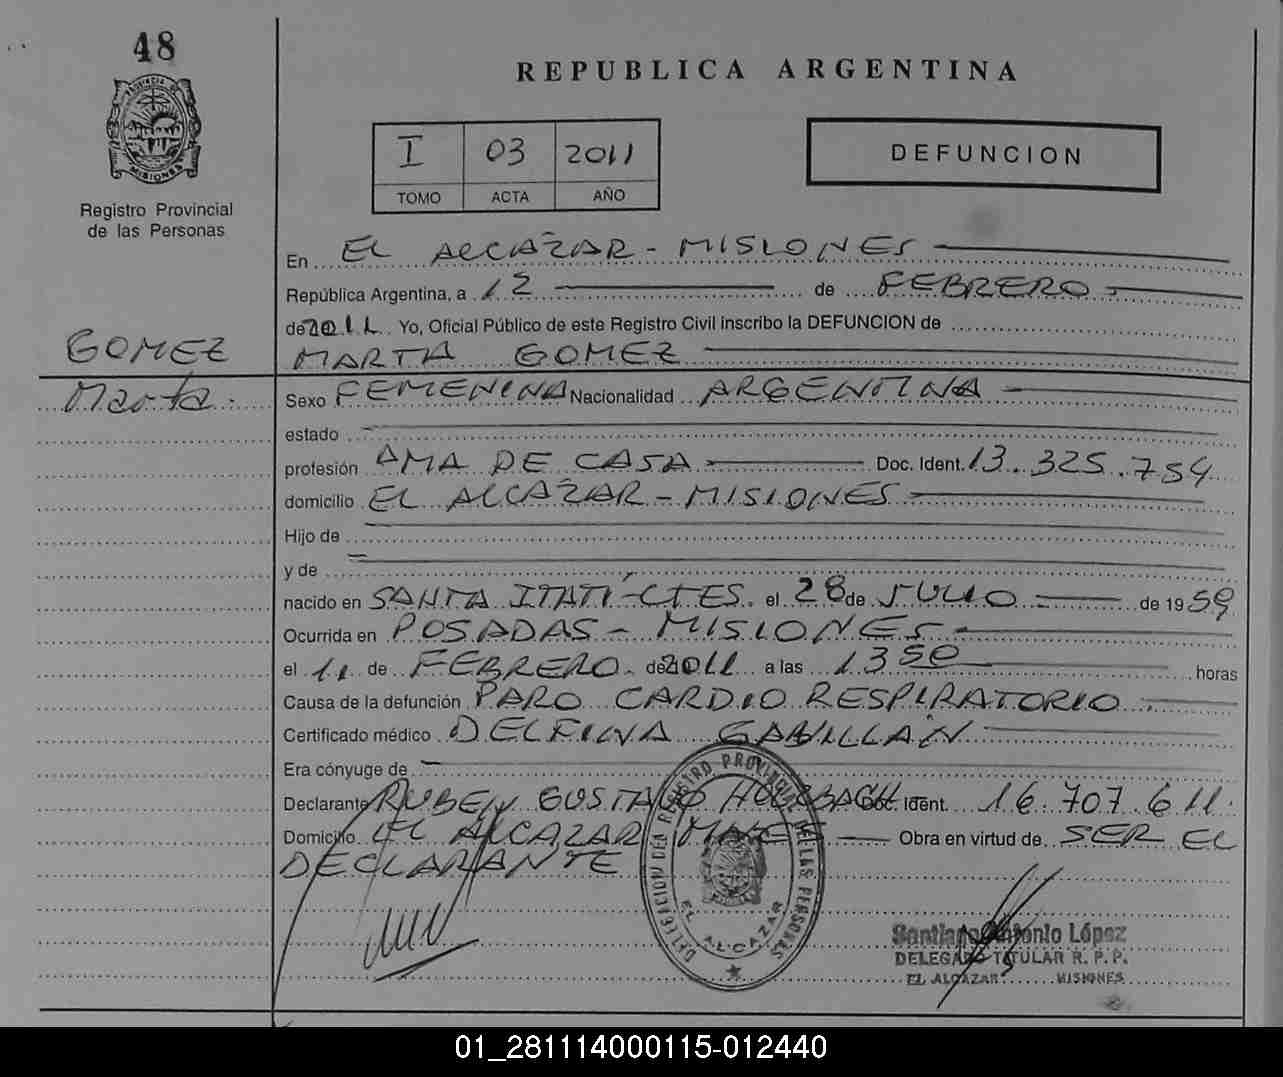 48
PROVINCIA DE
MISIONES
Registro Provincial
de las Personas
REPUBLICA ARGENTINA
I 03 2011
TOMO ACTA AÑO
DEFUNCION
En EL ALCAZAR - MISIONES
República Argentina, a 12 de FEBRERO
de 2011 Yo, Oficial Público de este Registro Civil inscribo la DEFUNCION de
GOMEZ MARTA GOMEZ
Marta. Sexo FEMENINA Nacionalidad ARGENTINA
estado
profesión AMA DE CASA Doc. Ident. 13.325.754
domicilio EL ALCAZAR - MISIONES
Hijo de
y de
nacido en SANTA ITATÍ-CTES. el 28 de JULIO de 1959
Ocurrida en POSADAS - MISIONES
el 11 de FEBRERO. de 2011 a las 13 50 horas
Causa de la defunción PARO CARDIO RESPIRATORIO
Certificado médico DELFINA GAVILLÁN
Era cónyuge de
Declarante RUBEN GUSTAVO Doc. Ident. 16.707.611.
Domicilio EL ALCAZAR Obra en virtud de SER EL
DECLARANTE
DELEGACION DEL REGISTRO PROVINCIAL DE LAS PERSONAS
EL ALCAZAR
Santiago Antonio López
DELEGADO TITULAR R. P. P.
EL ALCAZAR MISIONES
01_281114000115-012440